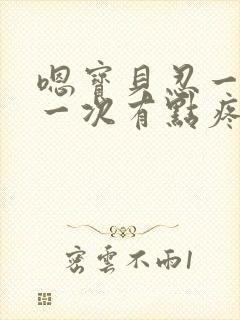 嗯寶貝忍一
一次有點疼
密雲不雨1